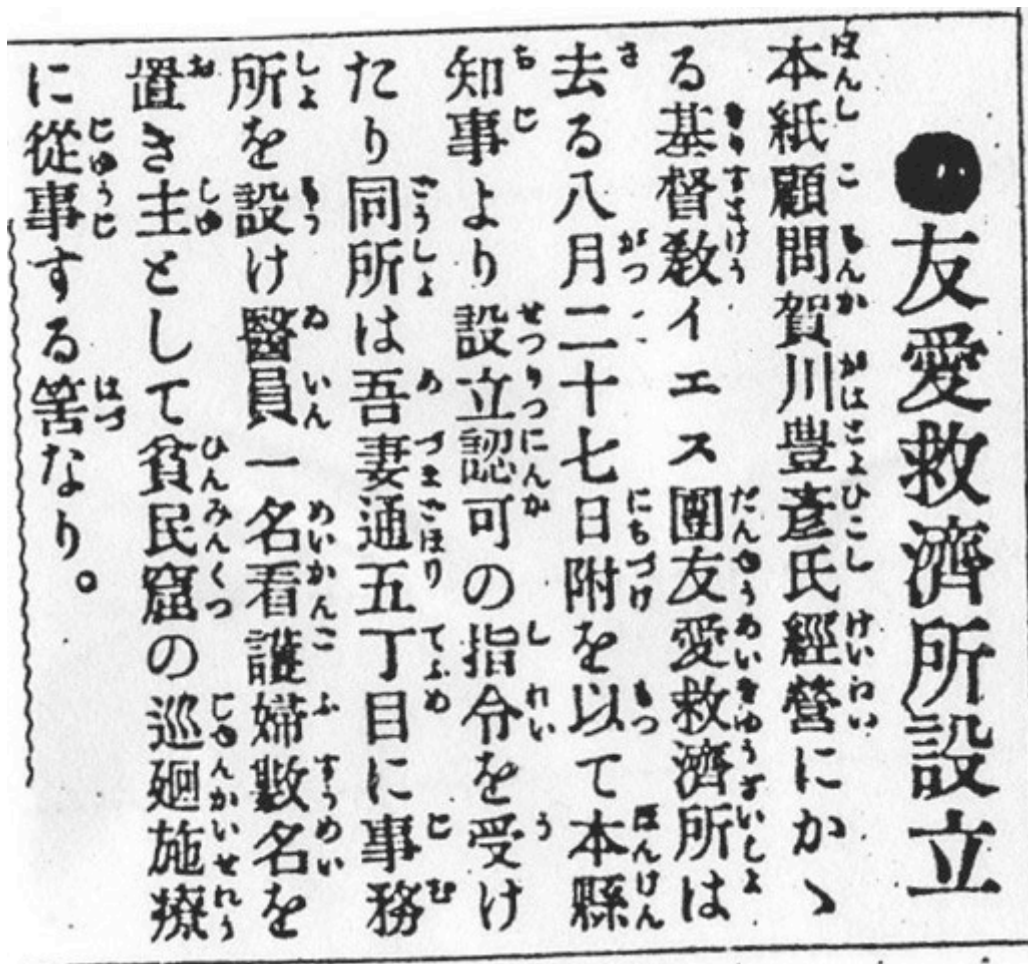 ●友愛救濟所設立
本紙顧問賀川豊彥氏經營にかゝ
る基督敎イエス團友愛救濟所は
去る八月二十七日附を以て本縣
知事より設立認可の指令を受け
たり同所は吾妻通五丁目に事務
所を設け醫員一名看護婦數名を
置き主として貧民窟の巡廻施療
に從事する筈なり。